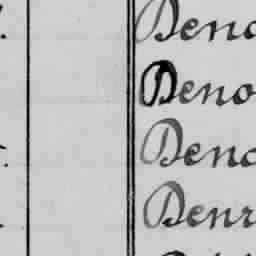 Deno
Deno
Deno
Denr